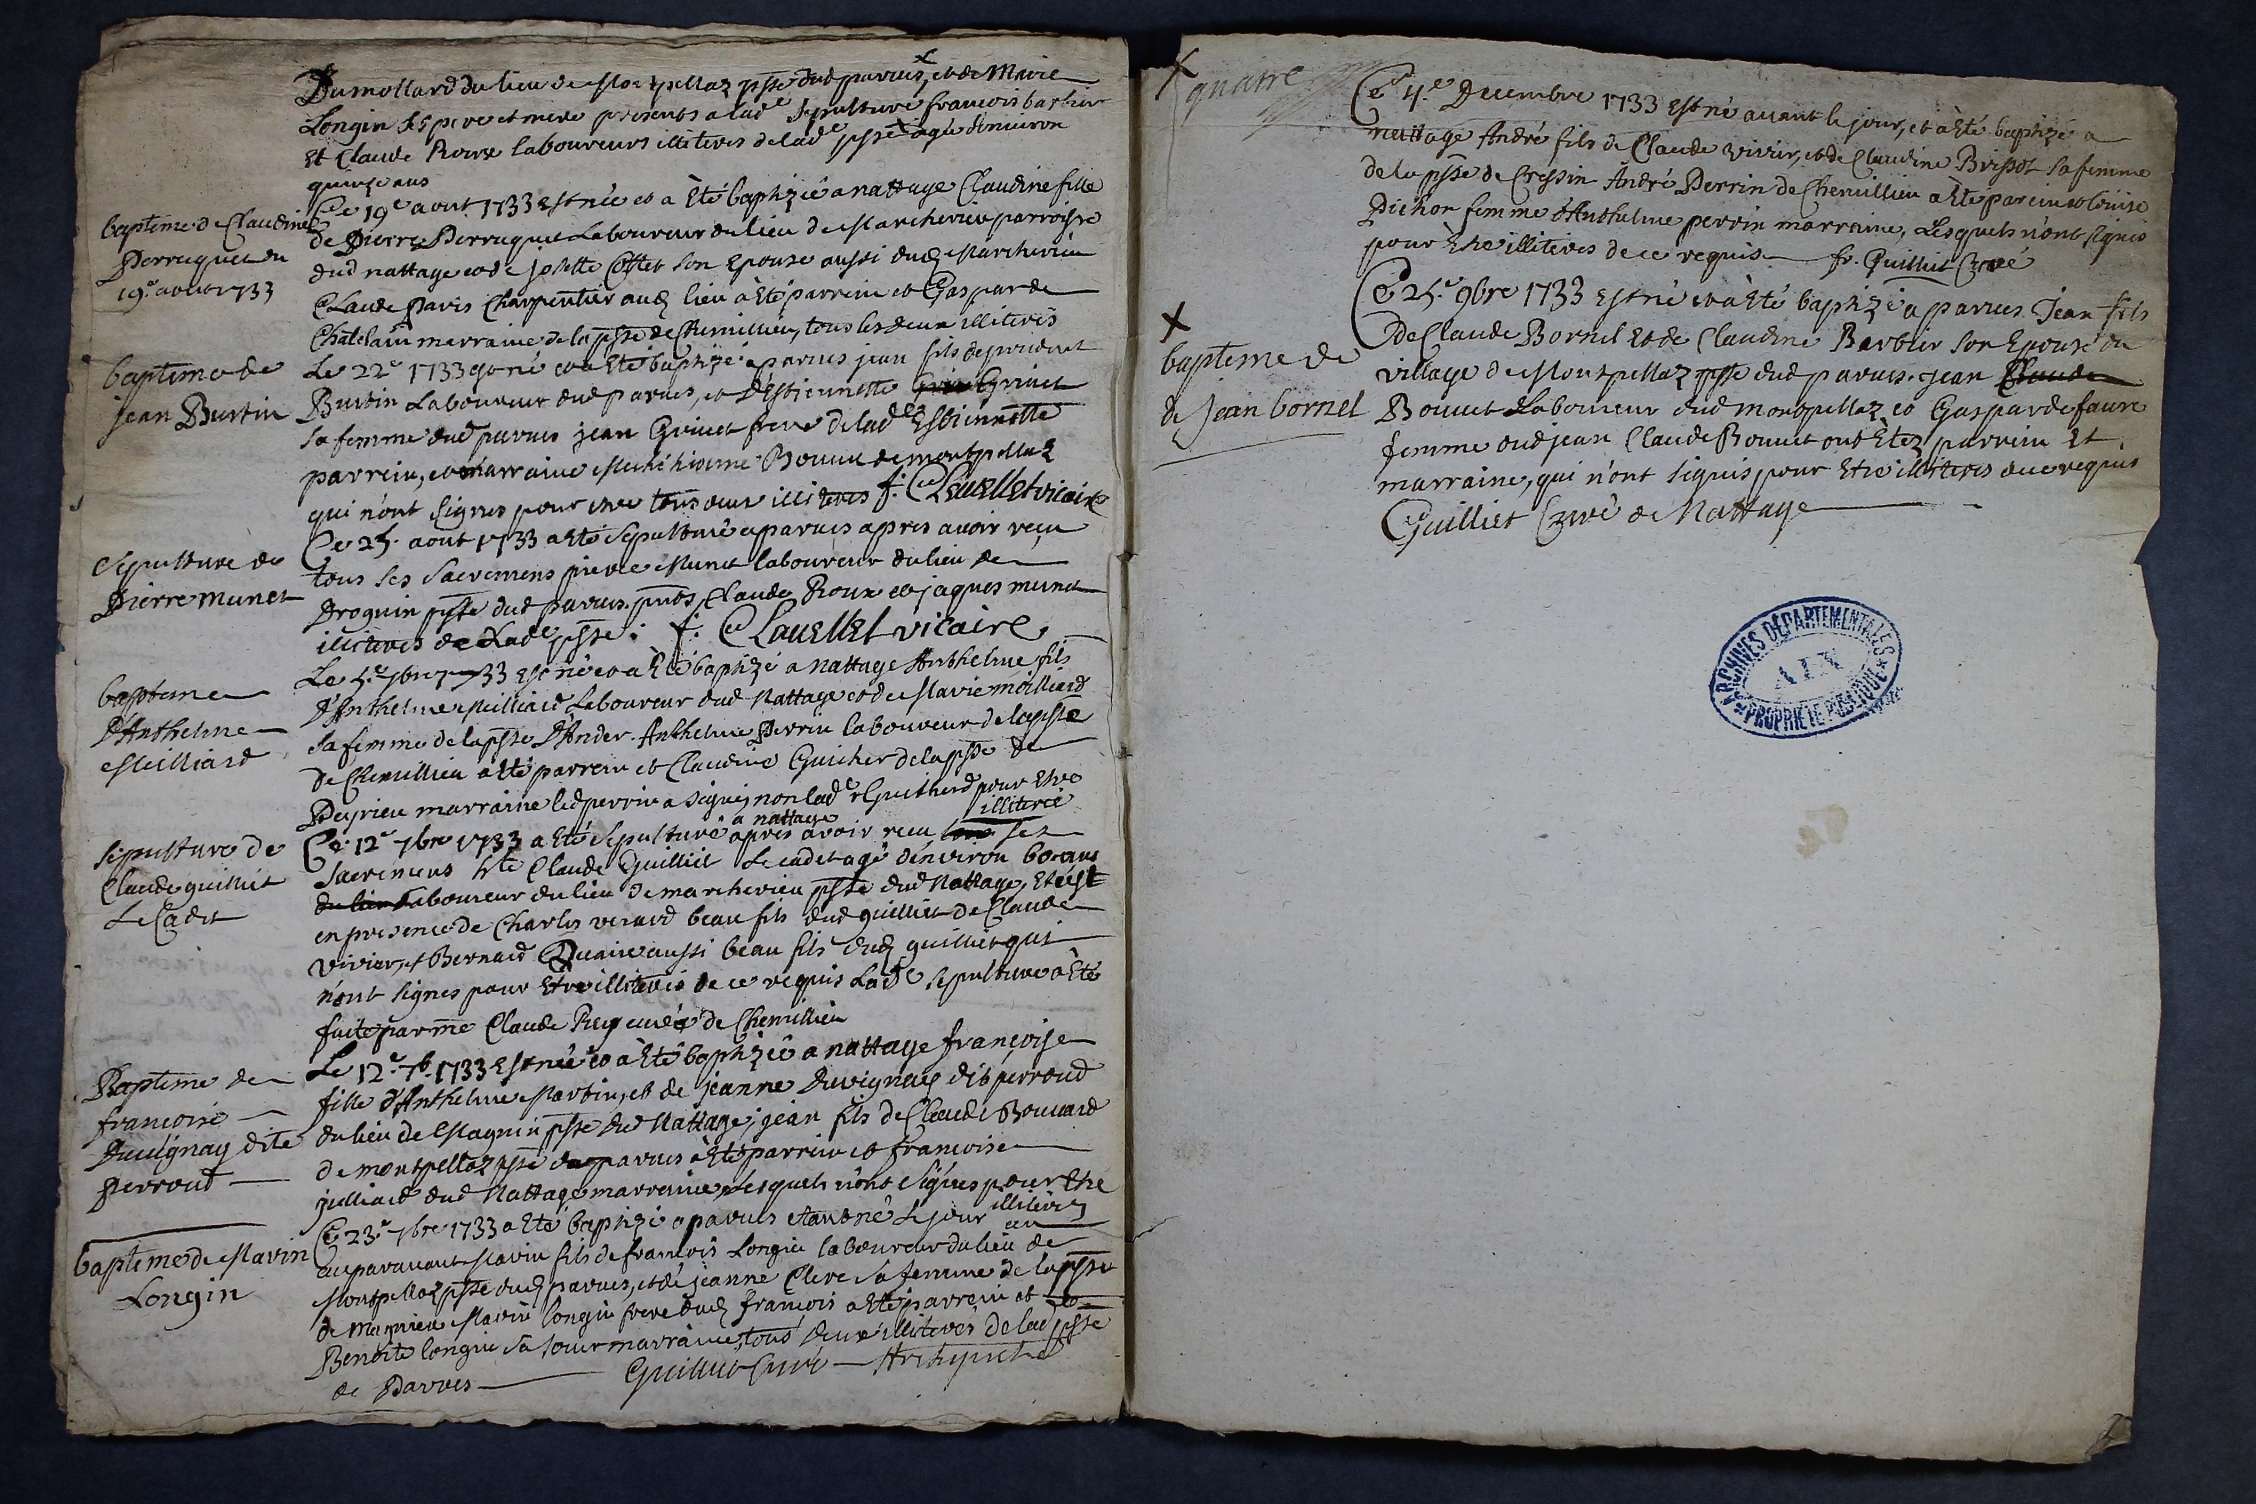 Dumollard du lieu de Montpellaz psse dud parves, et de Marie
Longin ses pere et mere presents a lade sepulture francois barbier
Et Claude Roux laboureurs illiteres de lad psse agé denviron
quinze ans
baptême de Claudine
Perruquet du
19e aoust 1733
Ce 19e aout 1733 est née et à Eté baptizée a nattage Claudine fille
de Pierre Perruquet Laboureur du lieu de Marcherieu parroisse
dud nattage et de Josette Cottet son Epouse aussi dud Marcherieu
Claude Paris Charpentier aud lieu à Eté parrein et Gasparde
Chatelain marraine de la psse de Chemillieu, tous les deux illiteres
baptême de
jean Burtin
Le 22e 1733 est né et a Eté baptizé a parves jean fils de prudent
Burtin Laboureur dud parves, et d'Estiennette Grinet
sa femme dud parves jean Grinet frere de lade Estiennette
parrein, et marraine Bouvet de montpellaz
qui n'ont signés pour etre tous deux illiteres f. Clavellet vicaire
Sepulture de
Pierre Munet
Ce 25. aout 1733 a Eté sepulturé a parves apres avoir reçu
tous ses Sacremens pierre Munet laboureur du lieu de
Droguin psse dud parves. pnts Claude Roux et jaques munet
illiteres de Lade psse. f. Clavellet vicaire
baptême
d'Anthelme
Meilliard
Le 5e 7bre 1733 est né et a Eté baptizé a Nattage Anthelme fils
d'Anthelme Meilliard Laboureur dud Nattage et de Marie meilliard
sa femme de la psse d'Ander. Anthelme Perrin laboureur de la psse
de Chemillieu a Eté parrein et Claudine Guicher de la psse de
Peyrieu marraine led perrin a signé, non lade Guicherd pour Etre
illiterée
Sepulture de
Claude guilliet
Le Cadet
Ce 12e 7bre 1733 a Eté sepulturé a nattage apres avoir reçu ses
Sacremens hte Claude Guilliet Le cadet agé d'environ 60 ans
du lieu Laboureur du lieu de marcherieu psse dud Nattage, Et c'est
en presence de Charles verard beau fils dud guilliet de Claude
Vivier, et Bernard Quaire aussi beau fils dud guilliet qui
n'ont signes pour Etre illiteres de ce requis Lade sepulture a Eté
faite par mre Claude Rey curé de Chemillieu
Baptême de
francoise
Duvignay dite
Perroud
Le 12e 7b. 1733 est née et à Eté baptizée a nattage françoise
fille d'Anthelme Martin, et de jeanne Duvignay dit perroud
du lieu de Lagnin psse dud Nattage; jean fils de Claude Bouvard
de montpellaz psse de parves a Eté parrein et francoise
julliard dud Nattage marraine, Lesquels n'ont signés pour Etre
illiteres
baptême de Marin
Longin
Ce 23e 7bre 1733 a Eté baptizé a parves etant né le jour
auparavant Marin fils de francois Longin laboureur du lieu de
Montpellaz psse dud parves, et de jeanne Clerc sa femme de la psse
de Magnieu Marin longin frere dud francois a Eté parrein et
Benoite longin sa soeur marraine, tous deux illiteres de lad psse
de Parves Guilliet Curé Archiprêtre
quatre
Ce 4.e Decembre 1733 Est né avant le jour, et à Eté baptizé a
nattage André fils de Claude vivier, et de Claudine Brissot sa femme
de la psse de Cressin André Perrin de Chemillieu a Eté parein et loüise
Pichon femme d'Anthelme perrin marraine, Lesquels n'ont signés
pour Etre illiteres de ce requis fr. Guilliet Curé
baptême de
de Jean bornel
Ce 25.e 9bre 1733 Est né et à Eté baptizé a parves Jean fils
de Claude Bornel Et de Claudine Barbier son Epouse du
village de Montpellaz psse dud parves. jean Claude
Bouvet Laboureur dud montpellaz et Gasparde faure
femme dud jean Claude Bouvet ont Etez parrein Et
marraine, qui n'ont signés pour Etre illiteres de ce requis
Guilliet Curé de Nattage
ARCHIVES DÉPARTEMENTALES
AIN
PROPRIÉTÉ PUBLIQUE